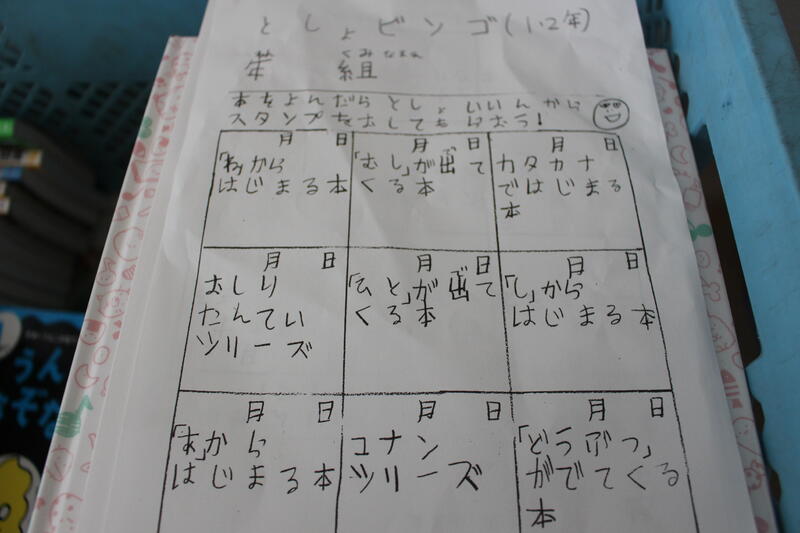 としょビンゴ(1.2年)
年 組
くみ なまえ
本をよんだらとしょいいんから
スタンプをおしてもらおう!
月 日
「ねから
はじまる本
月 日
「むし」が出て
くる本
月 日
カタカナ
ではじまる
本
月 日
おしり
たんてい
シリーズ
月 日
「ひと」が出て
くる本
月 日
「し」から
はじまる本
月 日
「あ」から
はじまる本
月 日
コナン
シリーズ
月 日
「どうぶつ」
がでてくる
本
うん